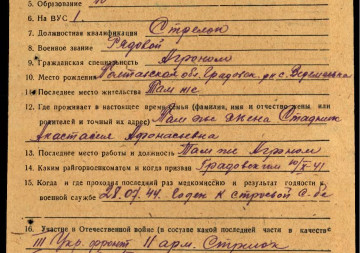 5. Образование
6. На ВУС 1
7. Должностная квалификация Стрелок
8. Военное звание Рядовой
9. Гражданская специальность Агроном
10. Место рождения Полтавской обл. Градовск. р-н с.
11. Последнее место жительства Там же
12. Где проживает в настоящее время семья (фамилия, имя и отчество жены или
родителей и точный их адрес) Там же жена
Анастасия Афанасиевна
13. Последнее место работы и должность Там же Агроном
14. Каким райгорвоенкоматом и когда призван Градовским 41
15. Когда и где проходил последний раз медкомиссию и результат годности к
военной службе 28.07.44. Годен к строевой с-бе
16. Участие в Отечественной войне (в составе какой последней части в качестве
III Укр. фронт 11 арм. Стрелок